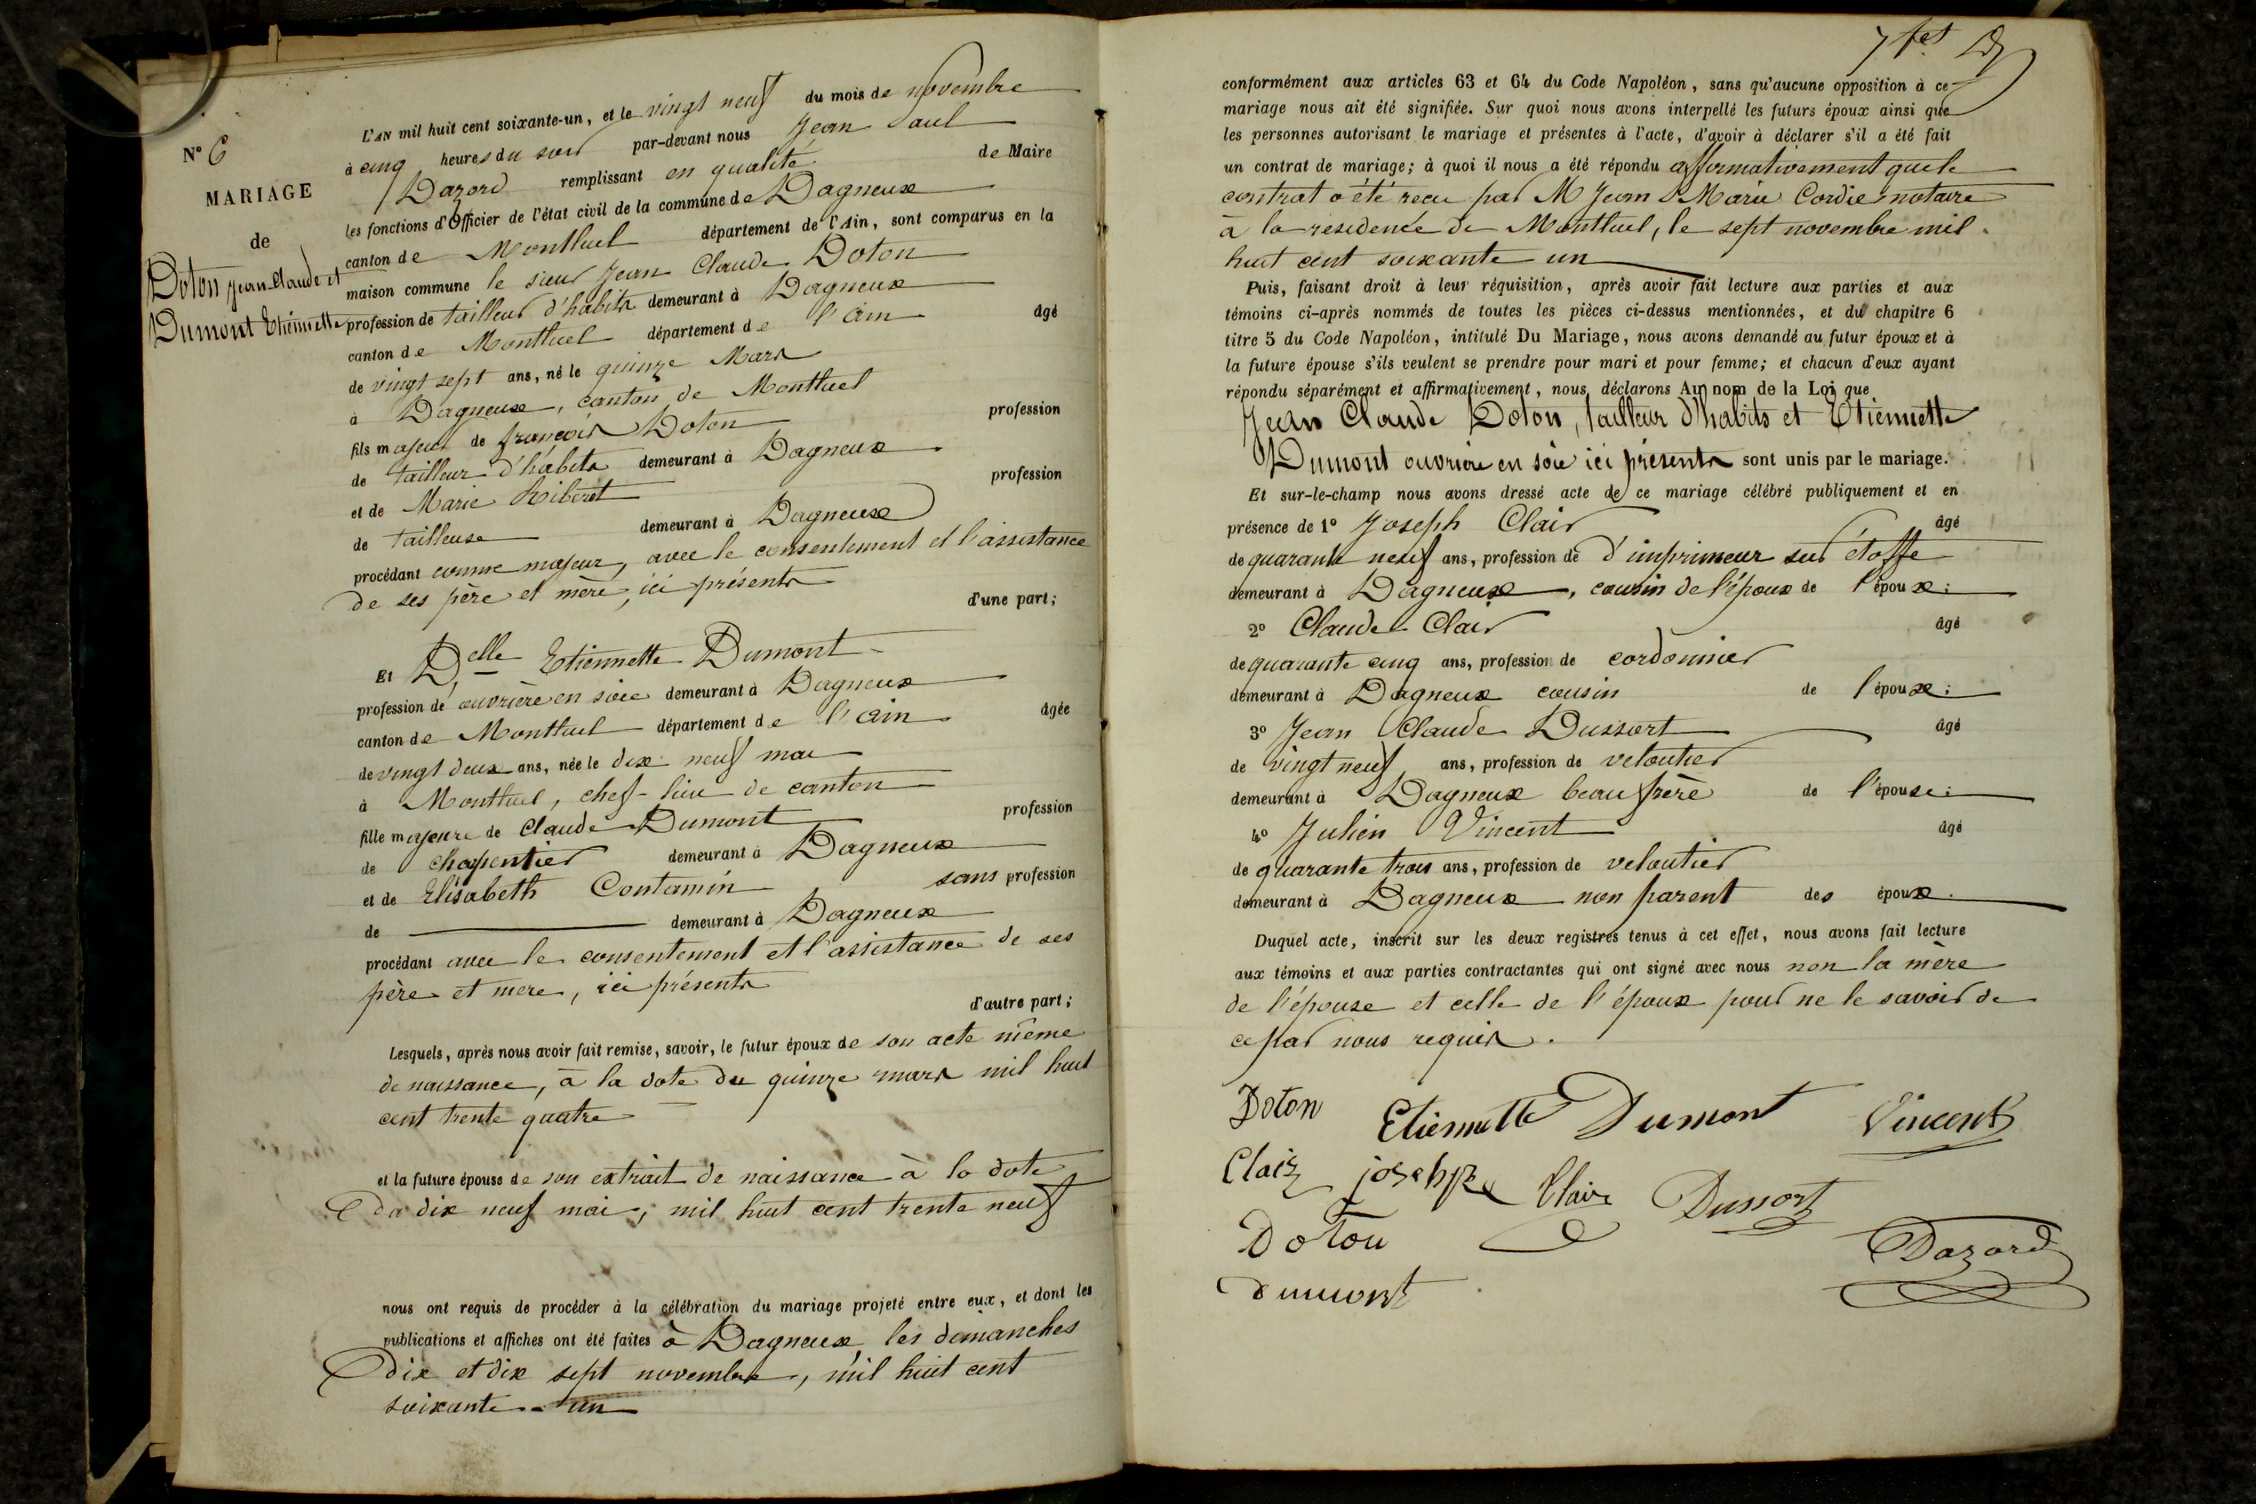 N° 6
MARIAGE
de
Doton Jean-Claude et
Dumont Etiennette
L'AN mil huit cent soixante-un, et le vingt neuf du mois de novembre
à cinq heures du soir par-devant nous Jean Paul
Dazord remplissant en qualité de Maire
les fonctions d'Officier de l'état civil de la commune de Dagneux
canton de Montluel département de l'Ain, sont comparus en la
maison commune le sieur Jean Claude Doton
profession de tailleur d'habits demeurant à Dagneux
canton de Montluel département de l'ain âgé
de vingt sept ans, né le quinze Mars
à Dagneux, canton de Montluel
fils majeur de françois Doton profession
de tailleur d'habits demeurant à Dagneux
et de Marie Ribert profession
de tailleuse demeurant à Dagneux
procédant comme majeur, avec le consentement et l'assistance
de ses père et mère, ici présents
d'une part;
Et Delle Etiennette Dumont
profession de ouvrière en soie demeurant à Dagneux
canton de Montluel département de l'ain âgée
de vingt deux ans, née le dix neuf mai
à Montluel, chef-lieu de canton
fille majeure de Claude Dumont profession
de charpentier demeurant à Dagneux
et de Elisabeth Contamin sans profession
de demeurant à Dagneux
procédant avec le consentement et l'assistance de ses
père et mere, ici présents
d'autre part;
Lesquels, après nous avoir fait remise, savoir, le futur époux de son acte même
de naissance, à la date du quinze mars mil huit
cent trente quatre
et la future épouse de son extrait de naissance à la date
du dix neuf mai, mil huit cent trente neuf
nous ont requis de procéder à la célébration du mariage projeté entre eux, et dont les
publications et affiches ont été faites à Dagneux, les dimanches
dix et dix sept novembre, mil huit cent
soixante-un
7 fet D
conformément aux articles 63 et 64 du Code Napoléon, sans qu'aucune opposition à ce
mariage nous ait été signifiée. Sur quoi nous avons interpellé les futurs époux ainsi que
les personnes autorisant le mariage et présentes à l'acte, d'avoir à déclarer s'il a été fait
un contrat de mariage; à quoi il nous a été répondu affirmativement que le
contrat a été reçu par M Jean Marie Cordie notaire
à la résidence de Montluel, le sept novembre mil
huit cent soixante un
Puis, faisant droit à leur réquisition, après avoir fait lecture aux parties et aux
témoins ci-après nommés de toutes les pièces ci-dessus mentionnées, et du chapitre 6
titre 5 du Code Napoléon, intitulé Du Mariage, nous avons demandé au futur époux et à
la future épouse s'ils veulent se prendre pour mari et pour femme; et chacun d'eux ayant
répondu séparément et affirmativement, nous déclarons Au nom de la Loi que
Jean Claude Doton, tailleur d'habits et Etiennette
Dumont ouvrière en soie ici présents sont unis par le mariage.
Et sur-le-champ nous avons dressé acte de ce mariage célébré publiquement et en
présence de 1° Joseph Clair âgé
de quarante neuf ans, profession de d'imprimeur sur étoffe
demeurant à Dagneux, cousin de l'époux de l'époux;
2° Claude Clair âgé
de quarante cinq ans, profession de cordonnier
demeurant à Dagneux cousin de l'époux;
3° Jean Claude Dussort âgé
de vingt neuf ans, profession de veloutier
demeurant à Dagneux beau frère de l'épouse;
4° Julien Vincent âgé
de quarante trois ans, profession de veloutier
demeurant à Dagneux non parent des époux.
Duquel acte, inscrit sur les deux registres tenus à cet effet, nous avons fait lecture
aux témoins et aux parties contractantes qui ont signé avec nous non la mère
de l'épouse et celle de l'époux pour ne le savoir de
ce par nous requis.
Doton Etiennette Dumont Vincent
Clair joseph Clair Dussort
Doton Dazord
dumont